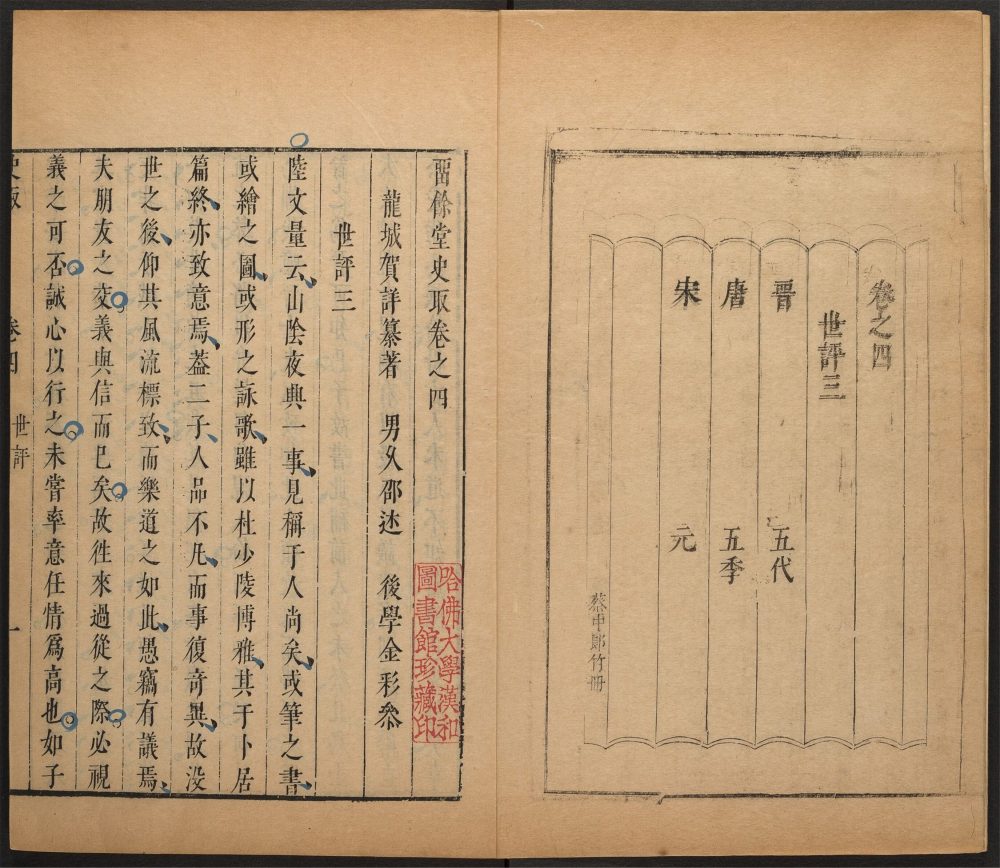 卷之四
世評三
晉 五代
唐 五季
宋 元
蔡中郎竹冊
畱餘堂史取卷之四
龍城賀詳纂著 男久邵述 後學金彩叅
世評三
陸文量云山陰夜興一事見稱于人尚矣或筆之書
或繪之圖或形之詠歌雖以杜少陵博雅其于卜居
篇終亦致意焉葢二子人品不凡而事復奇異故没
世之後仰其風流標致而樂道之如此愚竊有議焉
夫朋友之交義與信而已矣故徃來過從之際必視
義之可否誠心以行之未嘗率意任情爲高也如子
史取 卷四 世評 一
哈佛大學漢和
圖書館珍藏印